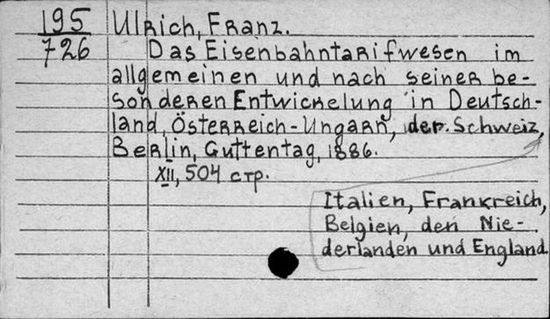 195
726
Ulrich, Franz.
Das Eisenbahntarifwesen im
allgemeinen und nach seiner be-
sonderen Entwickelung in Deutsch-
land, Österreich-Ungarn, der Schweiz,
Berlin, Guttentag, 1886.
XII, 504 стр.
Italien, Frankreich,
Belgien, den Nie-
derlanden und England.